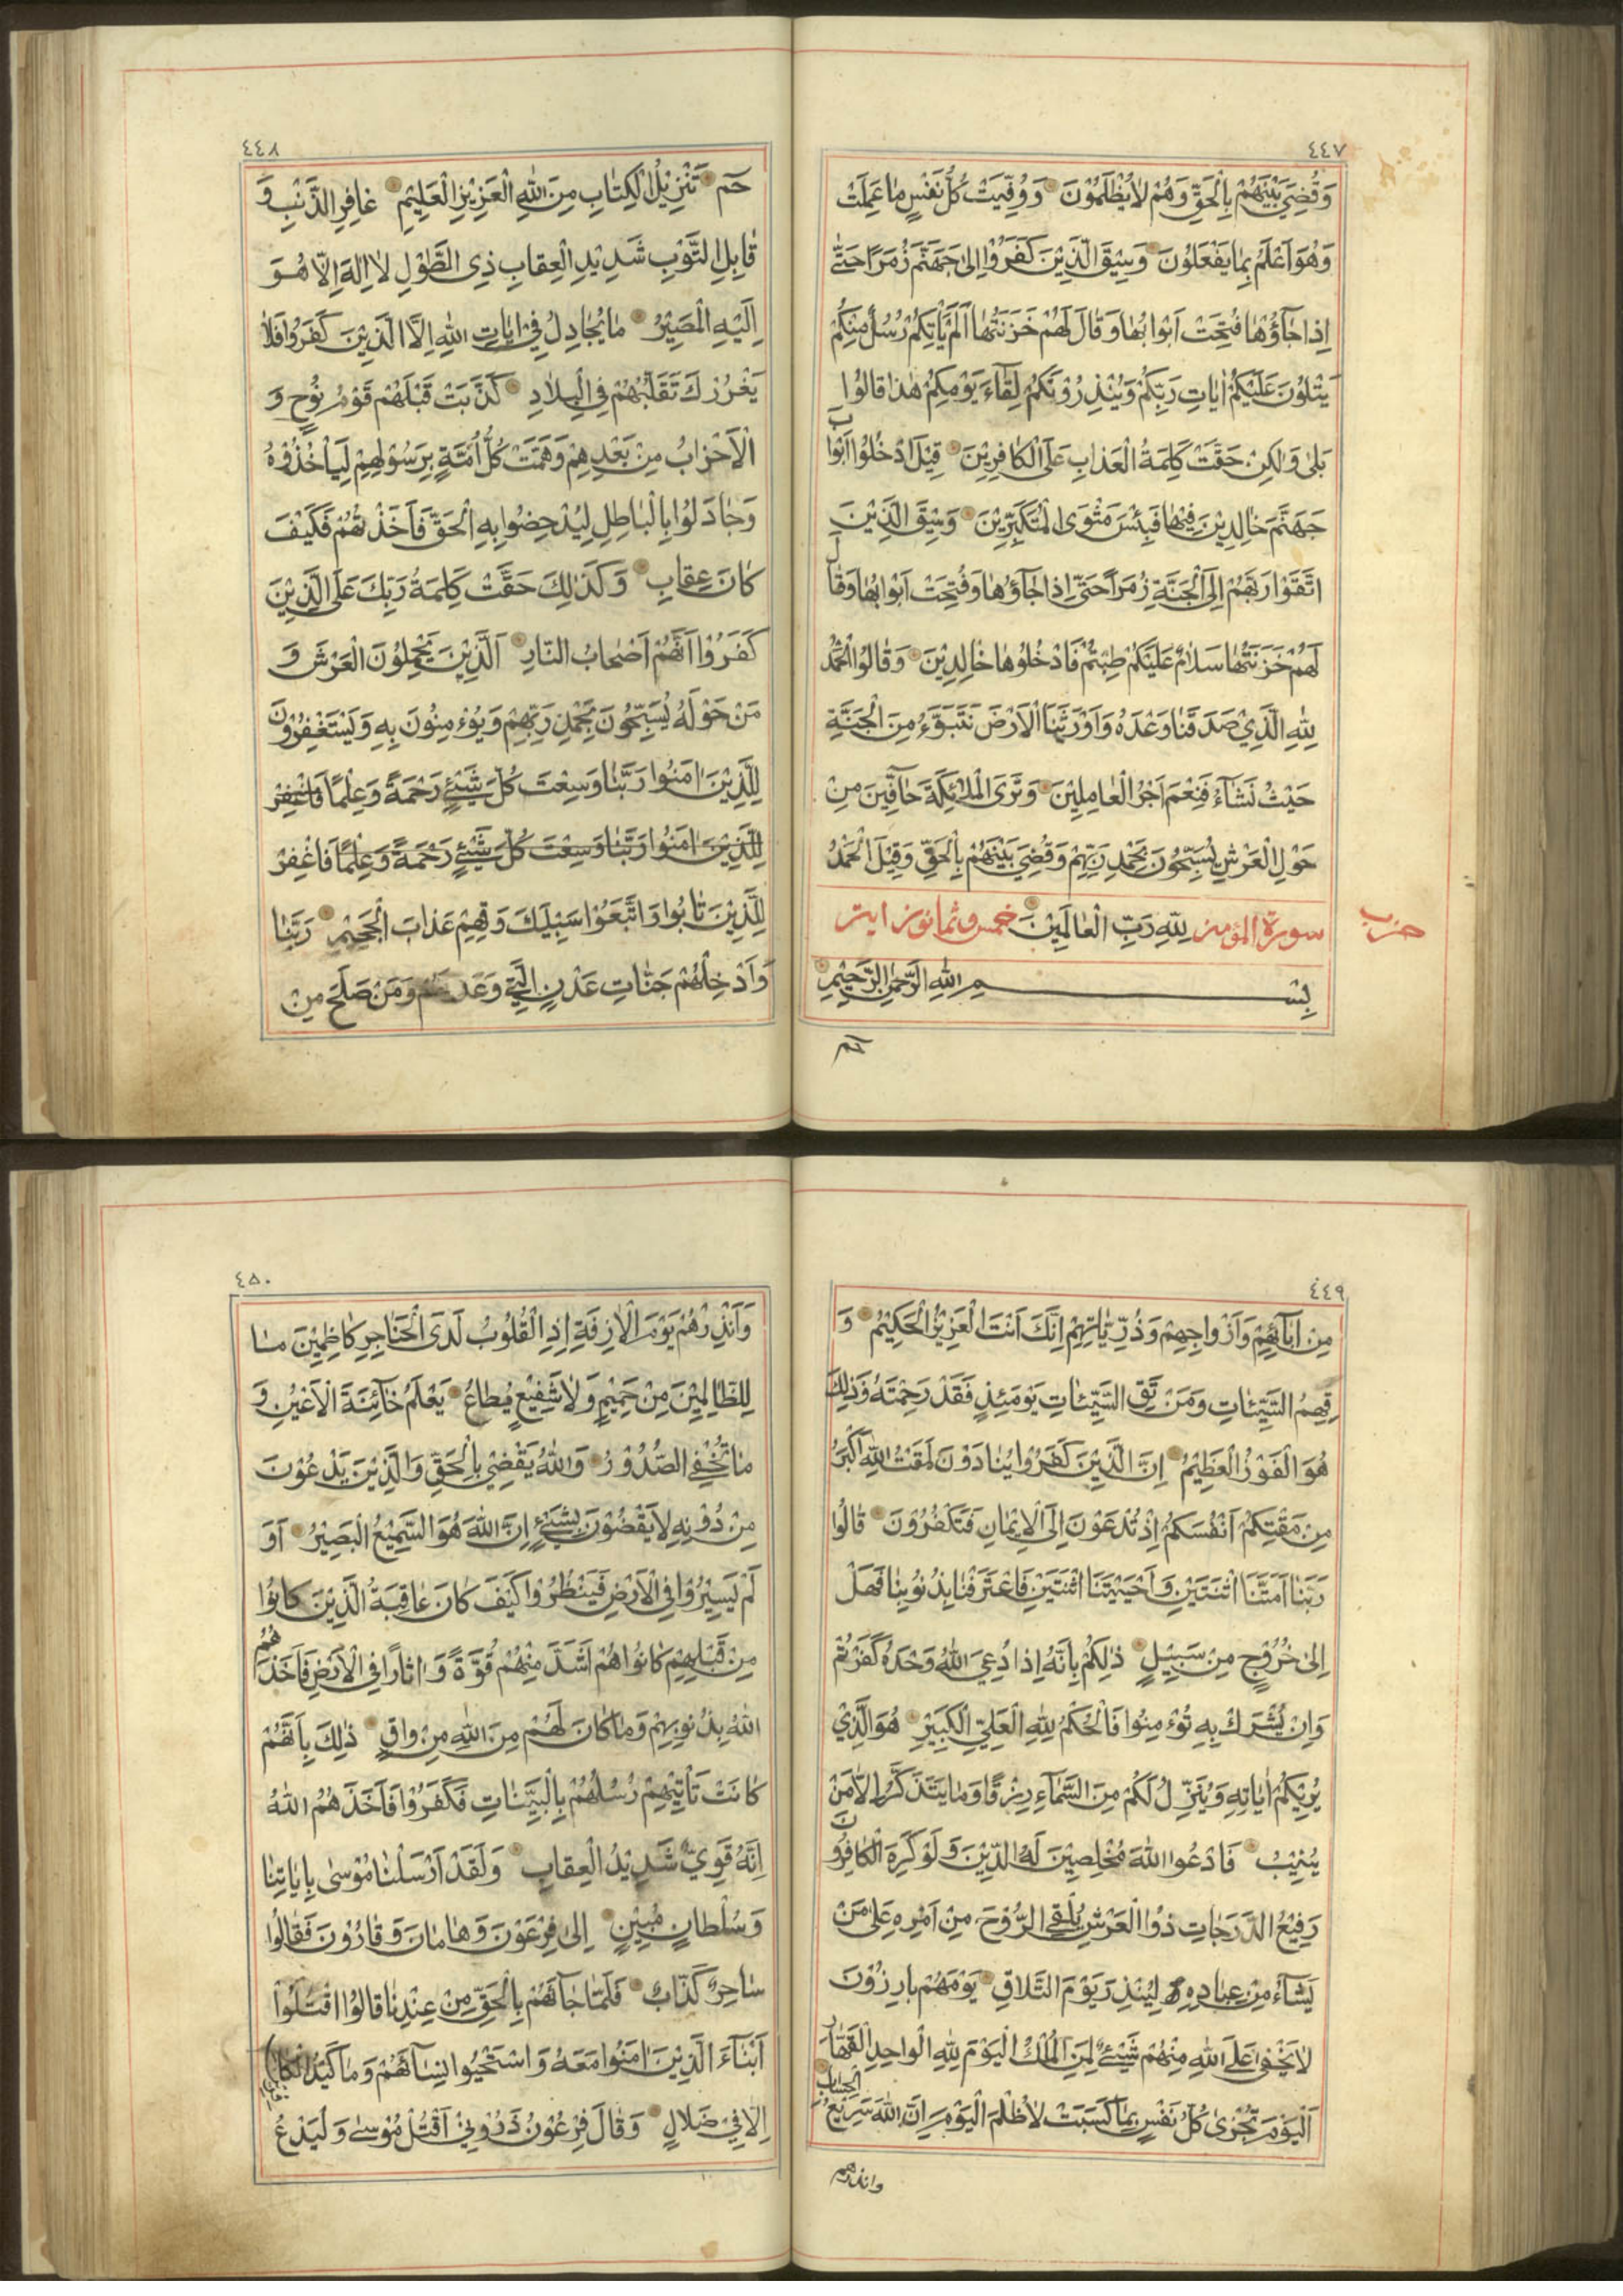 ٤٤٧
وَقُضِيَ بَيْنَهُمْ بِالْحَقِّ وَهُمْ لَا يُظْلَمُوْنَ وَوُفِّيَتْ كُلُّ نَفْسٍ مَا عَمِلَتْ
وَهُوَ اَعْلَمُ بِمَا يَفْعَلُوْنَ وَسِيْقَ الَّذِيْنَ كَفَرُوْا اِلٰى جَهَنَّمَ زُمَرًا حَتّٰى
اِذَا جَآؤُهَا فُتِحَتْ اَبْوَابُهَا وَقَالَ لَهُمْ خَزَنَتُهَا اَلَمْ يَأْتِكُمْ رُسُلٌ مِنْكُمْ
يَتْلُوْنَ عَلَيْكُمْ اٰيَاتِ رَبِّكُمْ وَيُنْذِرُوْنَكُمْ لِقَآءَ يَوْمِكُمْ هٰذَا قَالُوْا
بَلٰى وَلٰكِنْ حَقَّتْ كَلِمَةُ الْعَذَابِ عَلَى الْكَافِرِيْنَ قِيْلَ ادْخُلُوْا اَبْوَابَ
جَهَنَّمَ خَالِدِيْنَ فِيْهَا فَبِئْسَ مَثْوَى الْمُتَكَبِّرِيْنَ وَسِيْقَ الَّذِيْنَ
اتَّقَوْا رَبَّهُمْ اِلَى الْجَنَّةِ زُمَرًا حَتّٰى اِذَا جَآؤُهَا وَفُتِحَتْ اَبْوَابُهَا وَقَالَ
لَهُمْ خَزَنَتُهَا سَلَامٌ عَلَيْكُمْ طِبْتُمْ فَادْخُلُوهَا خَالِدِيْنَ وَقَالُوا الْحَمْدُ
لِلّٰهِ الَّذِيْ صَدَقَنَا وَعْدَهُ وَاَوْرَثَنَا الْاَرْضَ نَتَبَوَّءُ مِنَ الْجَنَّةِ
حَيْثُ نَشَآءُ فَنِعْمَ اَجْرُ الْعَامِلِيْنَ وَتَرَى الْمَلٰئِكَةَ حَآفِّيْنَ مِنْ
حَوْلِ الْعَرْشِ يُسَبِّحُوْنَ بِحَمْدِ رَبِّهِمْ وَقُضِيَ بَيْنَهُمْ بِالْحَقِّ وَقِيْلَ الْحَمْدُ
سورة المؤمن لِلّٰهِ رَبِّ الْعَالَمِيْنَ خمس وثمانون اية
حزب
بِسْمِ اللّٰهِ الرَّحْمٰنِ الرَّحِيْمِ
حم
٤٤٨
حٰم تَنْزِيْلُ الْكِتَابِ مِنَ اللّٰهِ الْعَزِيْزِ الْعَلِيْمِ غَافِرِ الذَّنْبِ وَ
قَابِلِ التَّوْبِ شَدِيْدِ الْعِقَابِ ذِى الطَّوْلِ لَا اِلٰهَ اِلَّا هُوَ
اِلَيْهِ الْمَصِيْرُ مَا يُجَادِلُ فِيْ اٰيَاتِ اللّٰهِ اِلَّا الَّذِيْنَ كَفَرُوْا فَلَا
يَغْرُرْكَ تَقَلُّبُهُمْ فِى الْبِلَادِ كَذَّبَتْ قَبْلَهُمْ قَوْمُ نُوْحٍ وَ
الْاَحْزَابُ مِنْ بَعْدِهِمْ وَهَمَّتْ كُلُّ اُمَّةٍ بِرَسُوْلِهِمْ لِيَأْخُذُوْهُ
وَجَادَلُوْا بِالْبَاطِلِ لِيُدْحِضُوا بِهِ الْحَقَّ فَاَخَذْتُهُمْ فَكَيْفَ
كَانَ عِقَابِ وَكَذٰلِكَ حَقَّتْ كَلِمَةُ رَبِّكَ عَلَى الَّذِيْنَ
كَفَرُوْا اَنَّهُمْ اَصْحَابُ النَّارِ اَلَّذِيْنَ يَحْمِلُوْنَ الْعَرْشَ وَ
مَنْ حَوْلَهُ يُسَبِّحُوْنَ بِحَمْدِ رَبِّهِمْ وَيُؤْمِنُوْنَ بِهِ وَيَسْتَغْفِرُوْنَ
لِلَّذِيْنَ اٰمَنُوْا رَبَّنَا وَسِعْتَ كُلَّ شَيْئٍ رَحْمَةً وَعِلْمًا فَاغْفِرْ
لِلَّذِيْنَ اٰمَنُوْا رَبَّنَا وَسِعْتَ كُلَّ شَيْئٍ رَحْمَةً وَعِلْمًا فَاغْفِرْ
لِلَّذِيْنَ تَابُوا وَاتَّبَعُوْا سَبِيْلَكَ وَقِهِمْ عَذَابَ الْجَحِيْمِ رَبَّنَا
وَاَدْخِلْهُمْ جَنَّاتِ عَدْنٍ الَّتِيْ وَعَدْتَهُمْ وَمَنْ صَلَحَ مِنْ
٤٤٩
مِنْ اٰبَآئِهِمْ وَاَزْوَاجِهِمْ وَذُرِّيَّاتِهِمْ اِنَّكَ اَنْتَ الْعَزِيْزُ الْحَكِيْمُ وَ
قِهِمُ السَّيِّئَاتِ وَمَنْ تَقِ السَّيِّئَاتِ يَوْمَئِذٍ فَقَدْ رَحِمْتَهُ وَذٰلِكَ
هُوَ الْفَوْزُ الْعَظِيْمُ اِنَّ الَّذِيْنَ كَفَرُوْا يُنَادَوْنَ لَمَقْتُ اللّٰهِ اَكْبَرُ
مِنْ مَقْتِكُمْ اَنْفُسَكُمْ اِذْ تُدْعَوْنَ اِلَى الْاِيْمَانِ فَتَكْفُرُوْنَ قَالُوْا
رَبَّنَا اَمَتَّنَا اثْنَتَيْنِ وَاَحْيَيْتَنَا اثْنَتَيْنِ فَاعْتَرَفْنَا بِذُنُوْبِنَا فَهَلْ
اِلٰى خُرُوْجٍ مِنْ سَبِيْلٍ ذٰلِكُمْ بِاَنَّهُ اِذَا دُعِيَ اللّٰهُ وَحْدَهُ كَفَرْتُمْ
وَاِنْ يُشْرَكْ بِهِ تُؤْمِنُوْا فَالْحُكْمُ لِلّٰهِ الْعَلِيِّ الْكَبِيْرِ هُوَ الَّذِيْ
يُرِيْكُمْ اٰيَاتِهِ وَيُنَزِّلُ لَكُمْ مِنَ السَّمَآءِ رِزْقًا وَمَا يَتَذَكَّرُ اِلَّا مَنْ
يُنِيْبُ فَادْعُوا اللّٰهَ مُخْلِصِيْنَ لَهُ الدِّيْنَ وَلَوْ كَرِهَ الْكَافِرُوْنَ
رَفِيْعُ الدَّرَجَاتِ ذُوا الْعَرْشِ يُلْقِى الرُّوْحَ مِنْ اَمْرِهِ عَلٰى مَنْ
يَشَآءُ مِنْ عِبَادِهِ لِيُنْذِرَ يَوْمَ التَّلَاقِ يَوْمَهُمْ بَارِزُوْنَ
لَا يَخْفٰى عَلَى اللّٰهِ مِنْهُمْ شَيْئٌ لِمَنِ الْمُلْكُ الْيَوْمَ لِلّٰهِ الْوَاحِدِ الْقَهَّارِ
اَلْيَوْمَ تُجْزٰى كُلُّ نَفْسٍ بِمَا كَسَبَتْ لَا ظُلْمَ الْيَوْمَ اِنَّ اللّٰهَ سَرِيْعُ الْحِسَابِ
وانذرهم
٤٥٠
وَاَنْذِرْهُمْ يَوْمَ الْاٰزِفَةِ اِذِ الْقُلُوْبُ لَدَى الْحَنَاجِرِ كَاظِمِيْنَ مَا
لِلظَّالِمِيْنَ مِنْ حَمِيْمٍ وَلَا شَفِيْعٍ يُطَاعُ يَعْلَمُ خَآئِنَةَ الْاَعْيُنِ وَ
مَا تُخْفِى الصُّدُوْرُ وَاللّٰهُ يَقْضِيْ بِالْحَقِّ وَالَّذِيْنَ يَدْعُوْنَ
مِنْ دُوْنِهِ لَا يَقْضُوْنَ بِشَيْئٍ اِنَّ اللّٰهَ هُوَ السَّمِيْعُ الْبَصِيْرُ اَوَ
لَمْ يَسِيْرُوْا فِى الْاَرْضِ فَيَنْظُرُوْا كَيْفَ كَانَ عَاقِبَةُ الَّذِيْنَ كَانُوْا
مِنْ قَبْلِهِمْ كَانُوْا هُمْ اَشَدَّ مِنْهُمْ قُوَّةً وَاٰثَارًا فِى الْاَرْضِ فَاَخَذَهُمُ
اللّٰهُ بِذُنُوْبِهِمْ وَمَا كَانَ لَهُمْ مِنَ اللّٰهِ مِنْ وَاقٍ ذٰلِكَ بِاَنَّهُمْ
كَانَتْ تَأْتِيْهِمْ رُسُلُهُمْ بِالْبَيِّنَاتِ فَكَفَرُوْا فَاَخَذَهُمُ اللّٰهُ
اِنَّهُ قَوِيٌّ شَدِيْدُ الْعِقَابِ وَلَقَدْ اَرْسَلْنَا مُوْسٰى بِاٰيَاتِنَا
وَسُلْطَانٍ مُبِيْنٍ اِلٰى فِرْعَوْنَ وَهَامَانَ وَقَارُوْنَ فَقَالُوْا
سَاحِرٌ كَذَّابٌ فَلَمَّا جَآءَهُمْ بِالْحَقِّ مِنْ عِنْدِنَا قَالُوا اقْتُلُوْا
اَبْنَآءَ الَّذِيْنَ اٰمَنُوْا مَعَهُ وَاسْتَحْيُوا نِسَآءَهُمْ وَمَا كَيْدُ الْكَافِرِيْنَ
اِلَّا فِيْ ضَلَالٍ وَقَالَ فِرْعَوْنُ ذَرُوْنِيْ اَقْتُلْ مُوْسٰى وَلْيَدْعُ